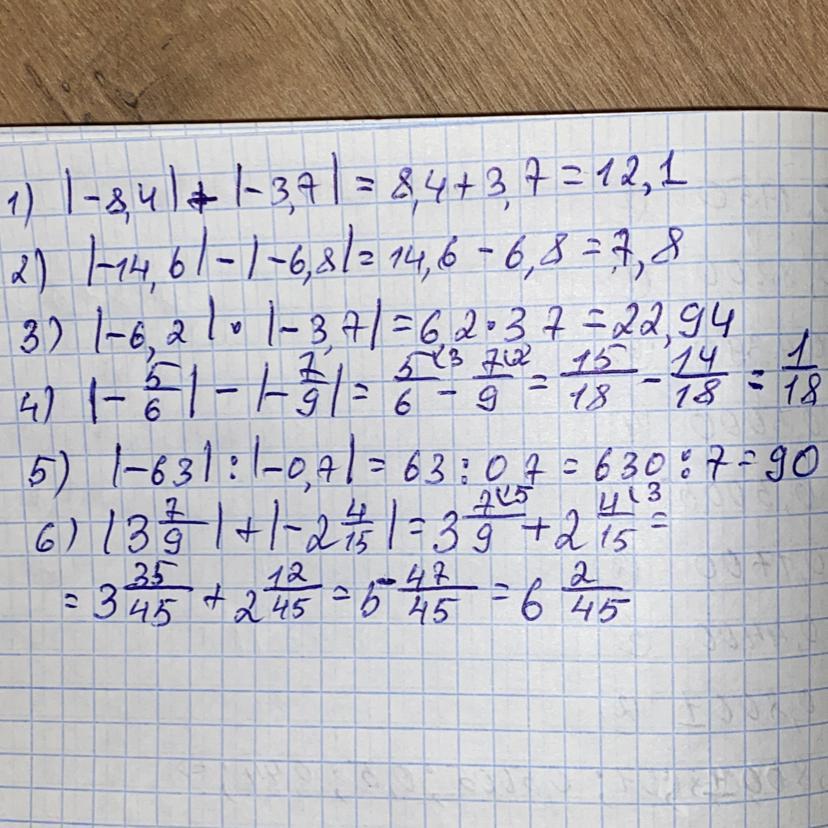 1) |-8,4| + |-3,7| = 8,4 + 3,7 = 12,1
2) |-14,6| - |-6,8| = 14,6 - 6,8 = 7,8
3) |-6,2| · |-3,7| = 6,2 · 3,7 = 22,94
4) |-5/6| - |-7/9| = 5/6 (3 - 7/9 (2 = 15/18 - 14/18 = 1/18
5) |-63| : |-0,7| = 63 : 0 7 = 630 : 7 = 90
6) |3 7/9| + |-2 4/15| = 3 7/9 (5 + 2 4/15 (3 =
= 3 35/45 + 2 12/45 = 5 47/45 = 6 2/45